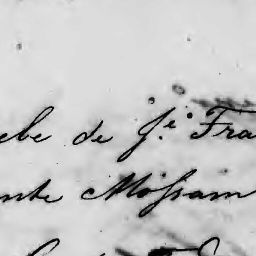 ebe de J.e Fra
nte Mossam